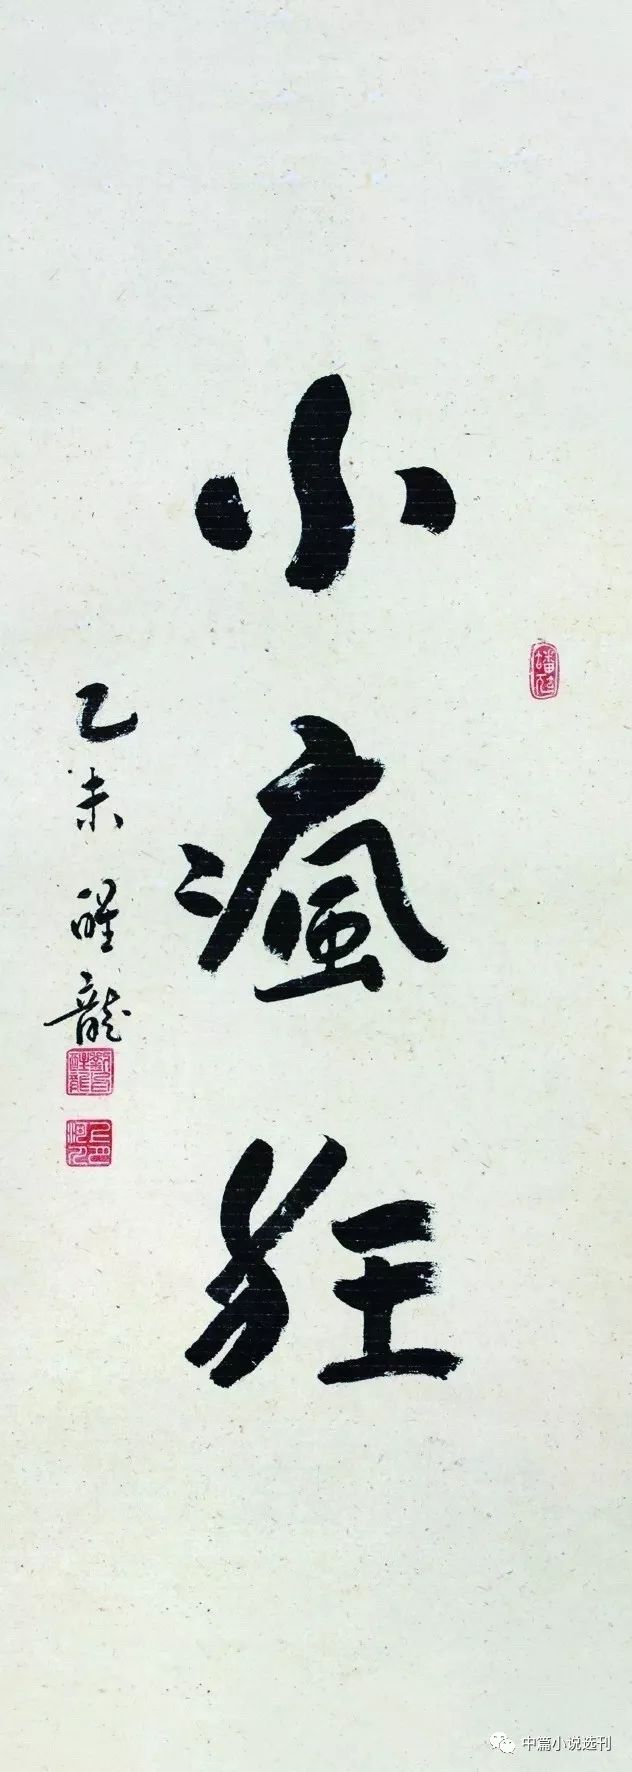 小瘋狂
乙未醒龍
中篇小说选刊